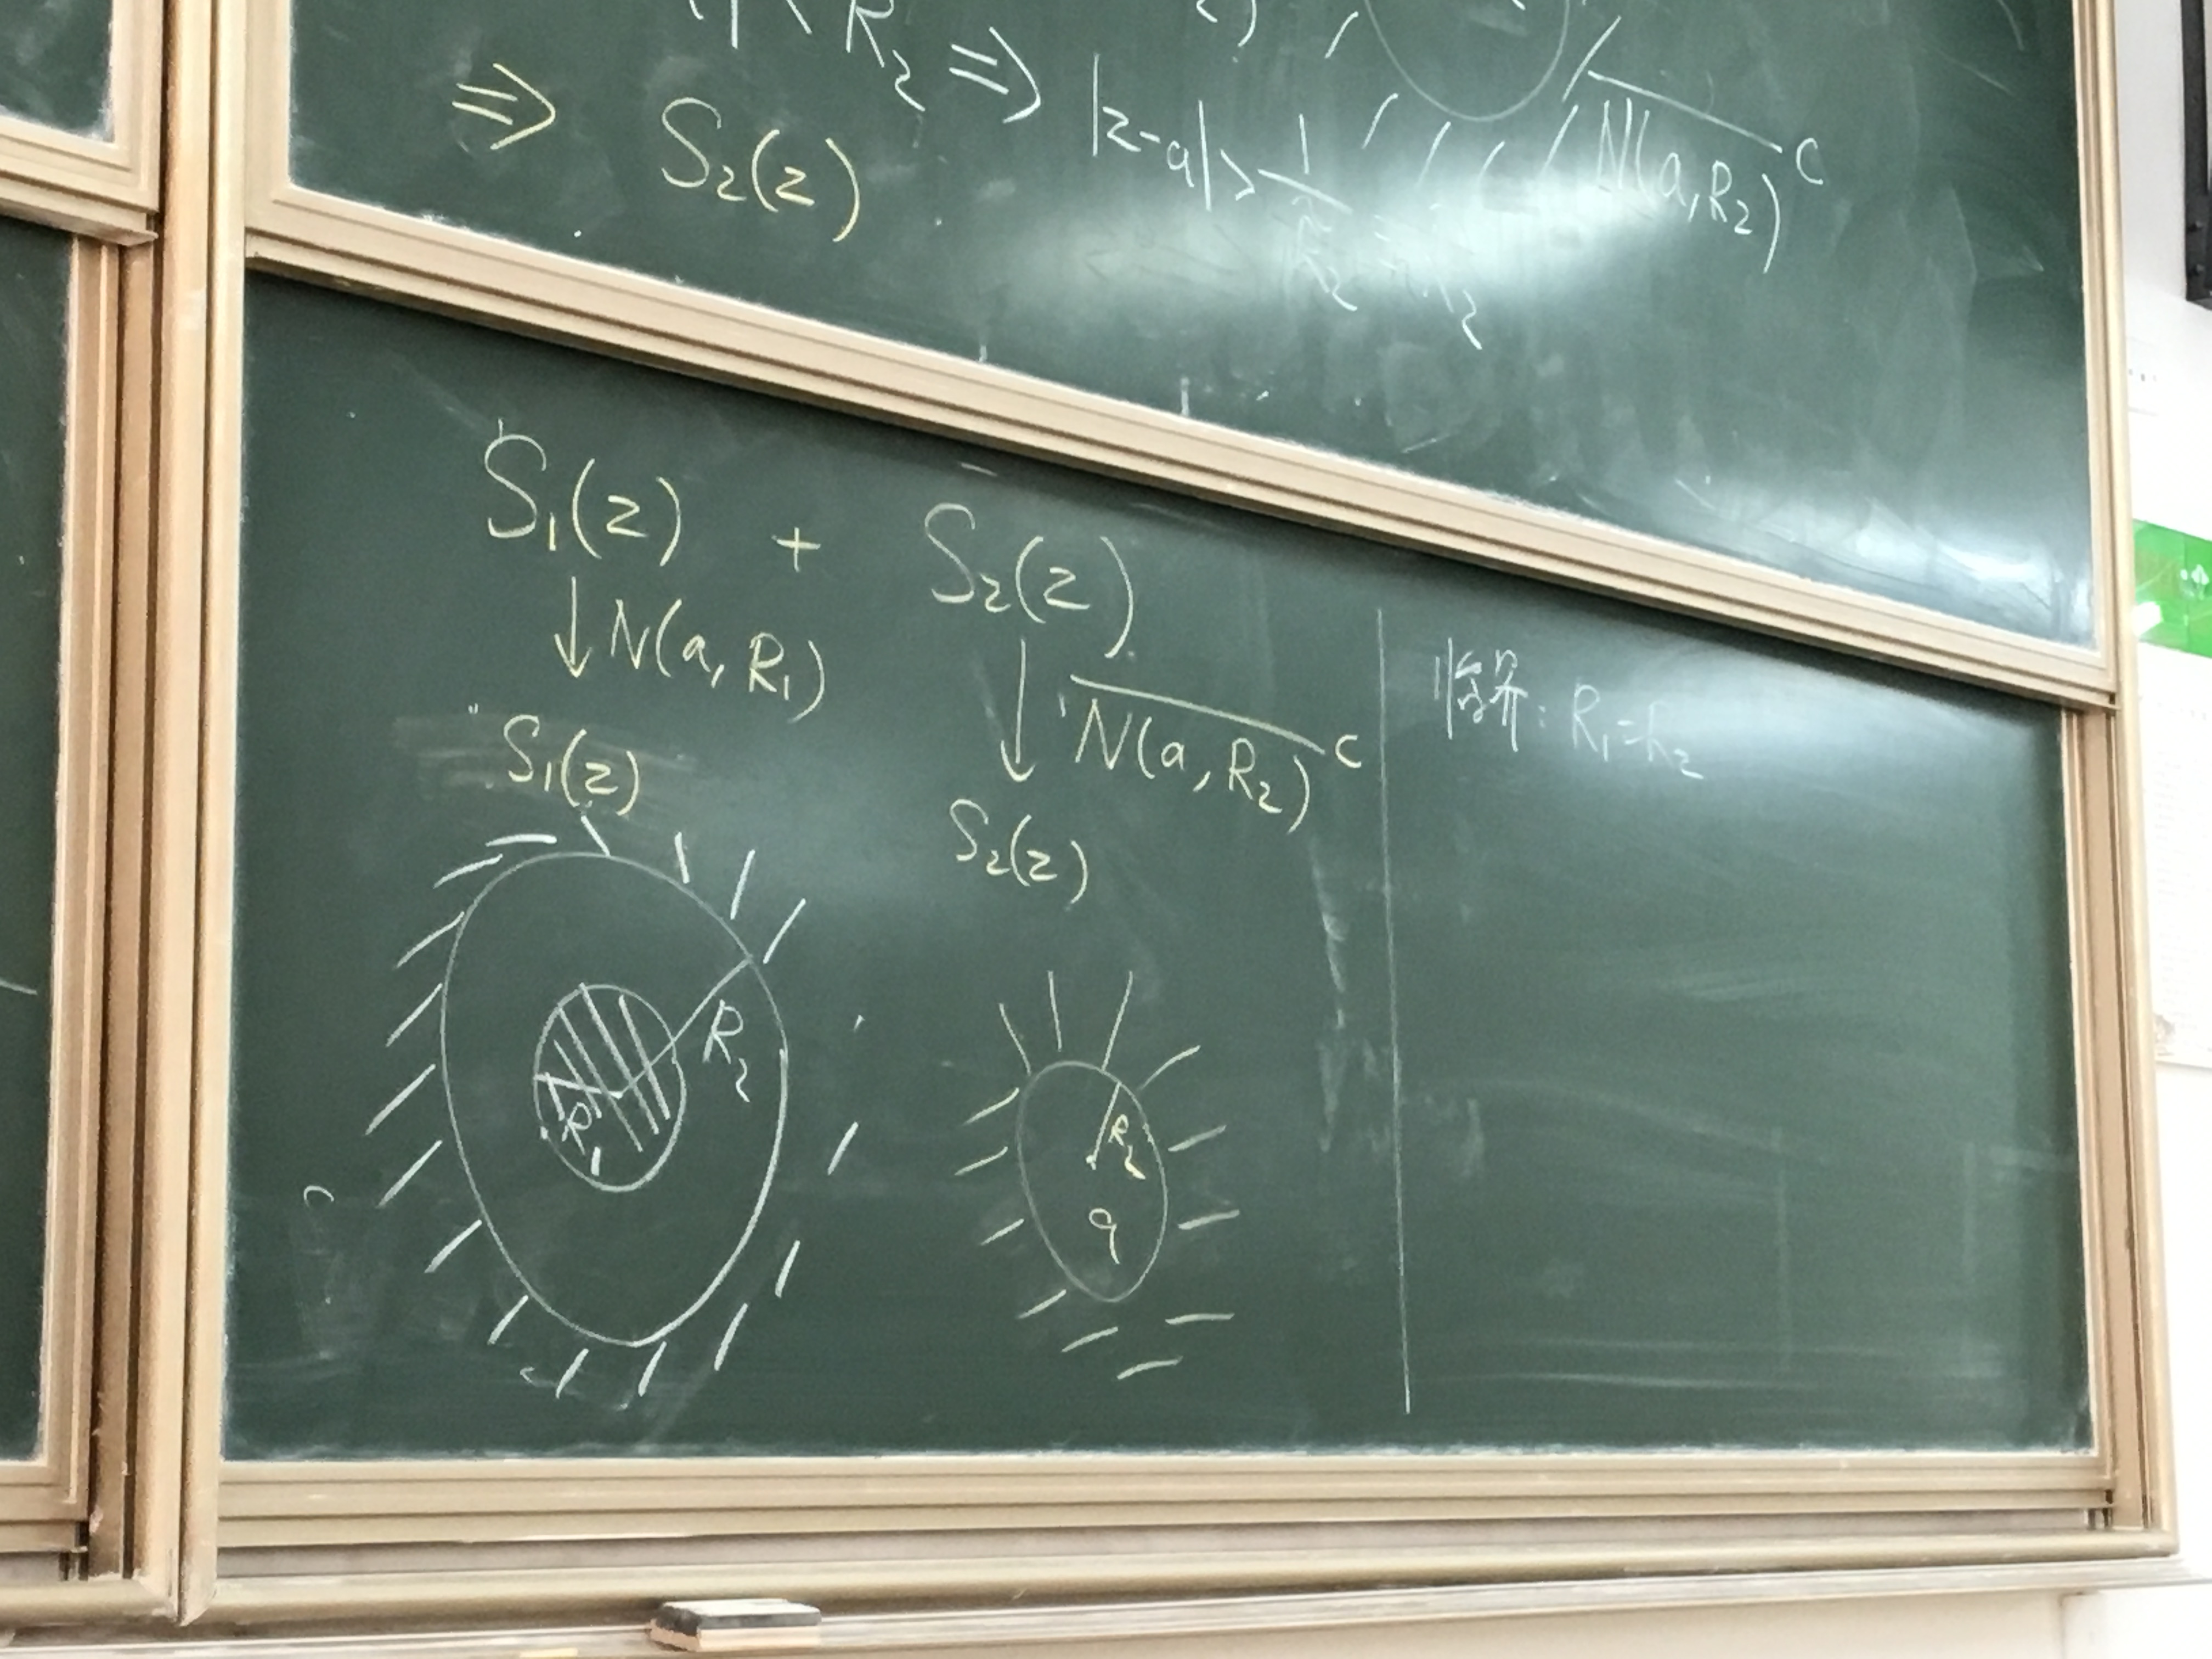 R₂ ⇒ |z-a| > 1/R̃₂ = R₂
⇒ S₂(z)
N(a,R₂)ᶜ
S₁(z) + S₂(z)
↓ N(a, R₁)
↓ N(a, R₂)ᶜ
S₁(z)
S₂(z)
R₂
R₁
R₂
a
临界: R₁=R₂